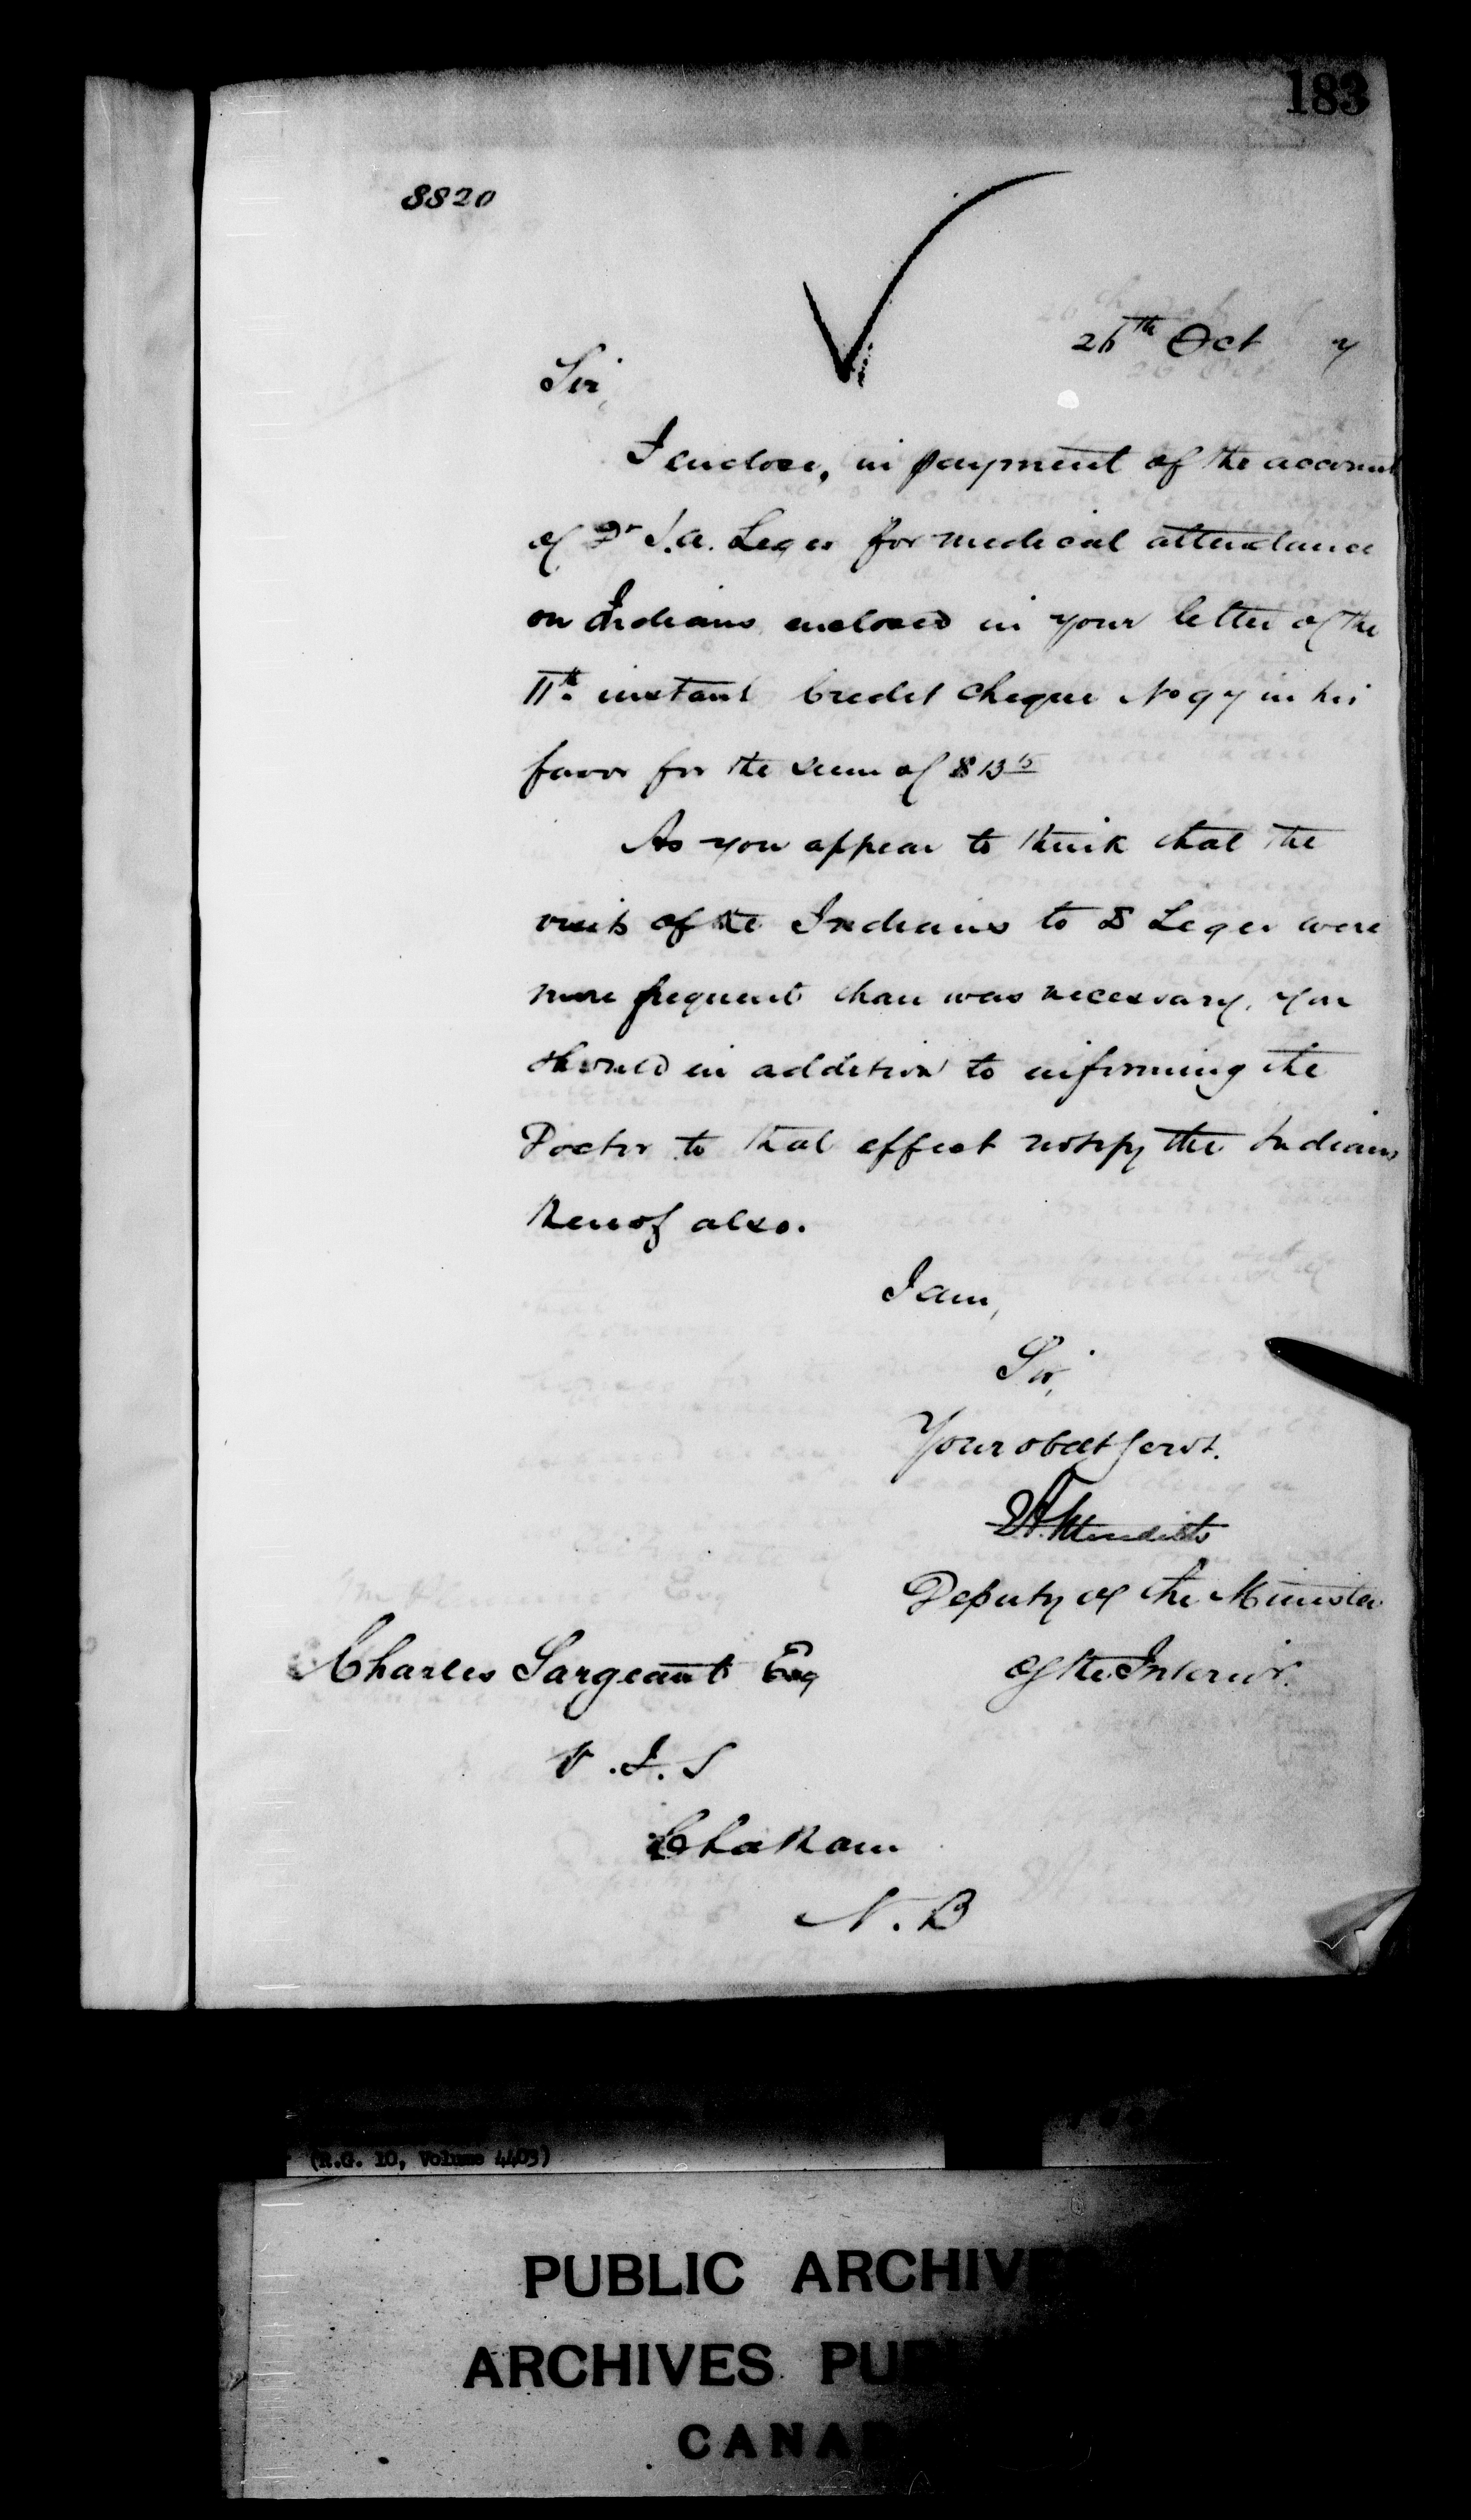 183
8820
26th Oct 7
Sir,
I enclose, in payment of the account
of Dr J.A. Leger for medical attendance
on Indians enclosed in your letter of the
11th instant Credit Cheque No 97 in his
favor for the sum of $13
As you appear to think that the
visits of the Indians to D Leger were
more frequent than was necessary, you
should in addition to informing the
Doctor to that effect notify the Indians
thereof also.
I am,
Sir,
Your obdt Servt.
Meredith
Deputy of the Minister
of the Interior.
Charles Sargeant Esq
V.I.S
Chatham
N.B
(R.G. 10, Volume 4403)
PUBLIC ARCHIVE
ARCHIVES PU
CANA